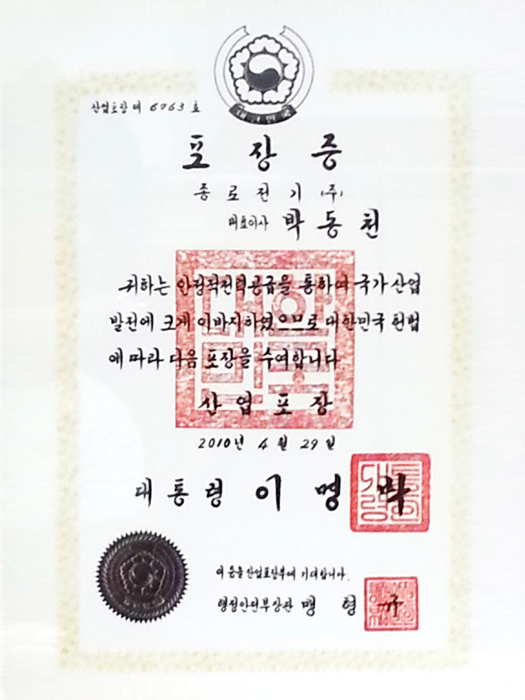 대한민국
산업포장 제 6763 호
포 장 증
종 로 전 기 (주)
대표이사 박 동 천
귀하는 안정적전력공급을 통하여 국가 산업
발전에 크게 이바지하였으므로 대한민국 헌법
에 따라 다음 포장을 수여합니다
산 업 포 장
2010년 4 월 29 일
대 통 령 이 명 박
이 증을 산업포장부에 기재합니다.
행정안전부장관 맹 형 규